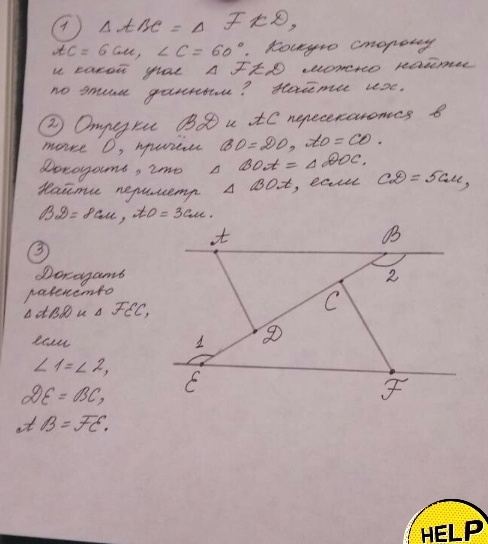 ① △ ABC = △ FKD,
AC = 6 см, ∠C = 60°. Какую сторону
и какой угол △ FKD можно найти
по этим данным? Найти их.
② Отрезки BD и AC пересекаются в
точке O, причём BO=DO, AO=CO.
Доказать, что △ BOA = △ DOC.
Найти периметр △ BOA, если CD = 5см,
BD = 8см, AO = 3см.
③
Доказать
равенство
△ABD и △FEC,
если
∠1=∠2,
DE = BC,
AB = FE.
A
B
2
C
D
1
E
F
HELP